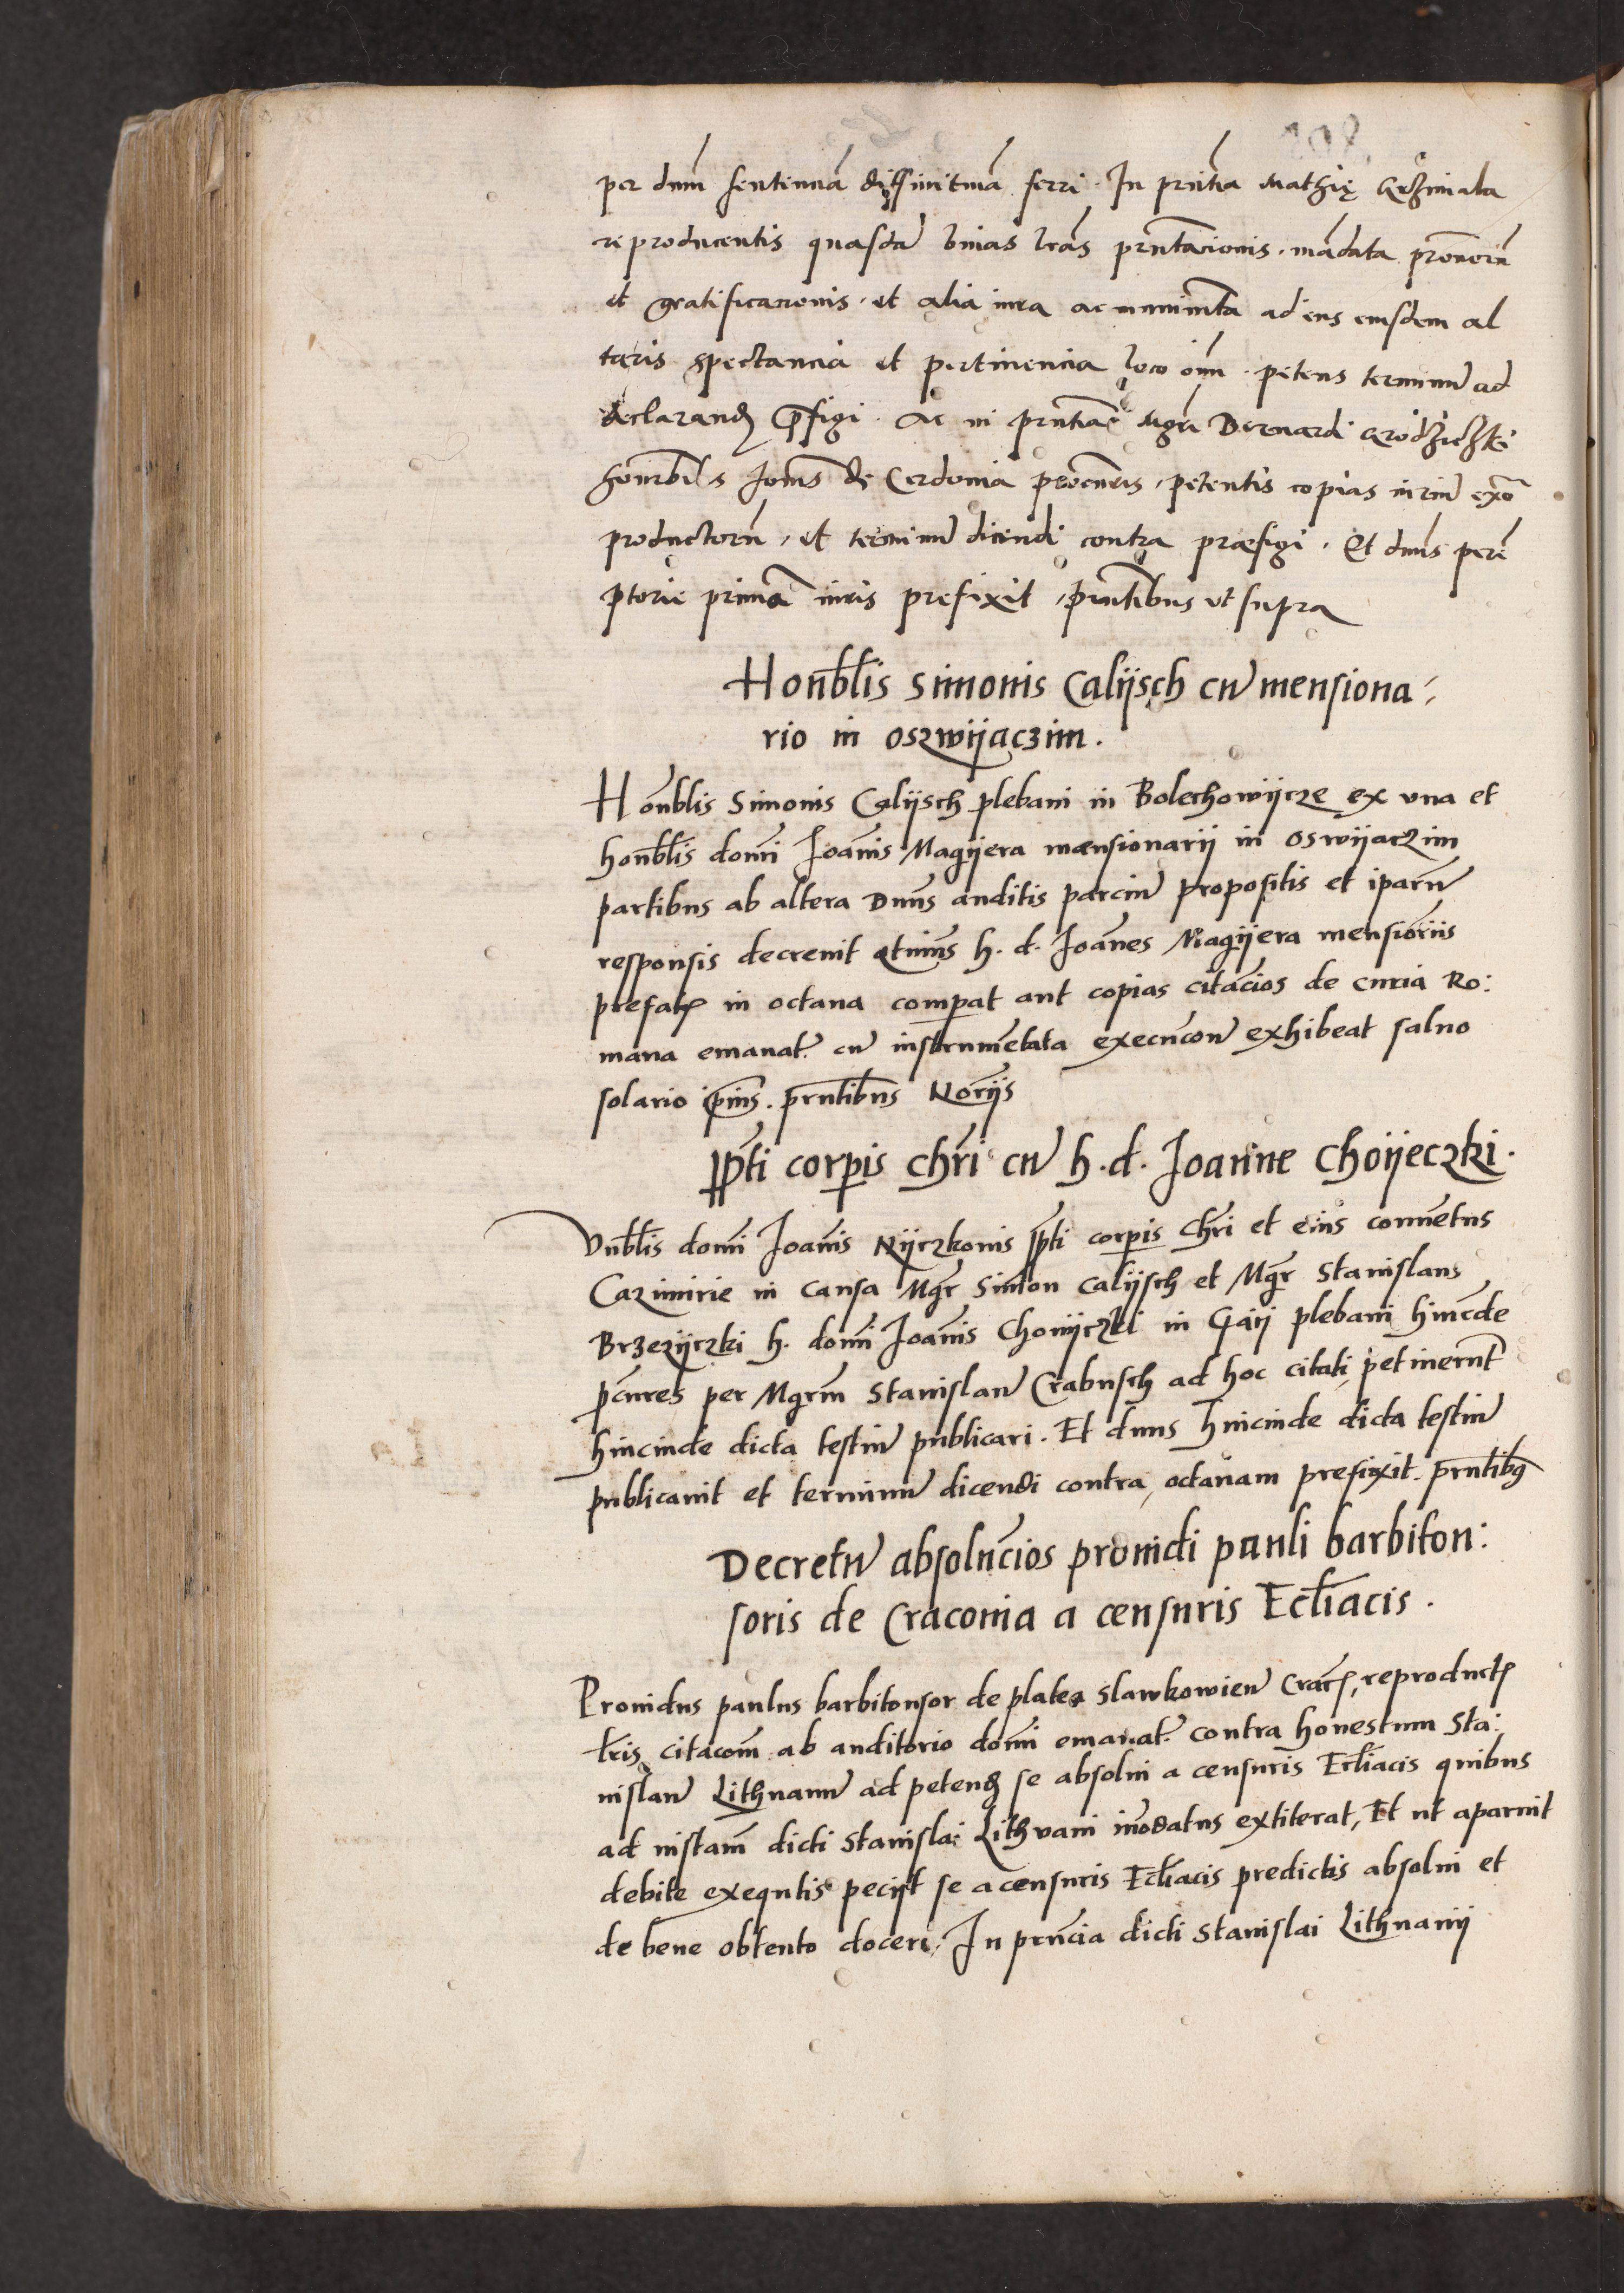 per dnm̃ sententiã diffinitiuã ferri. In pñtia Mathię Grzimala
reproducentis quasdã binas lr̃as pñtacionis, mãdata procuror̃
et gratificacionis, et alia iura ac munimẽta ad ius eiusdem al
taris spectancia et pertinencia loco oĩm. petens terminũ ad
declarand p̃figi. Ac in pñtia Mgr̃i Bernardi
honorbilis Joãnis de Cerdonia procur̃is, petentis copias iuriũ ex̃o
productorũ, et terminũ dicendi contra præfigi. Et dnũs perẽ
ptorie primã iuris prefixit, pñtibus vt supra
Honr̃blis Simonis Calijsch cũ mensiona:
rio in Oszwijaczim.
Honr̃blis Simonis Calijsch plebani in Bolechowijcze ex vna et
honr̃blis domĩ Joãnis Magijera mansionarij in Oswijaczim
partibus ab altera Dnũs auditis parciũ propositis et iparũ
responsis decreuit qtinũs h. d. Joãnes Magijera mensior̃iis
prefat in octaua compat aut copias citacĩos de curia Ro:
mana emanat cũ instrumẽtata execucoñ exhibeat saluo
solario ip̃ius. prñtibus Nor̃ijs
Pp̃ti corp̃is chr̃i cũ h. d. Joanne Choijeczki.
Vnr̃blis domĩ Joãnis Nijczkonis pp̃ti corp̃is chr̃i et eius conuẽtus
Cazimirie in causa Mgr̃ Simon Calijsch et Mgr̃ Stanislaus
Brzezijczki h. domĩ Joãnis Choijeczki in Gaij plebani hincde
p̃cures per Mgrm̃ Stanislaũ Crabusch ad hoc citati petiuerunt
hincinde dicta testiũ publicari. Et dnus hincinde dicta testiũ
publicauit et terminũ dicendi contra, octauam prefixit. prñtibus
Decretũ absolucĩos prouidi pauli barbiton:
soris de Cracouia a censuris Eccl̃iacis.
Prouidus paulus barbitonsor de platea Slawkowieñ Crac̃, reproduct
lr̃is citacom̃ ab auditorio domĩ emanat contra honestum Sta:
nislaũ Lithuanũ ad petend se absolui a censuris Eccl̃iacis quibus
ad instam̃ dicti Stanislai Lithvani inodatus extiterat, Et ut aparuit
debite exequtis pecijt se a censuris Eccl̃iacis predictis absolui et
de bene obtento doceri, In prñcia dicti Stanislai Lithuanij